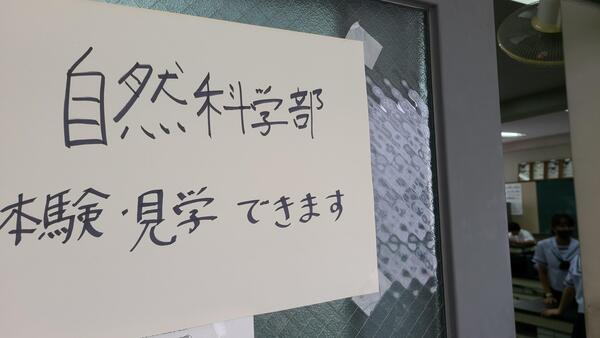 自然科学部
体験・見学できます